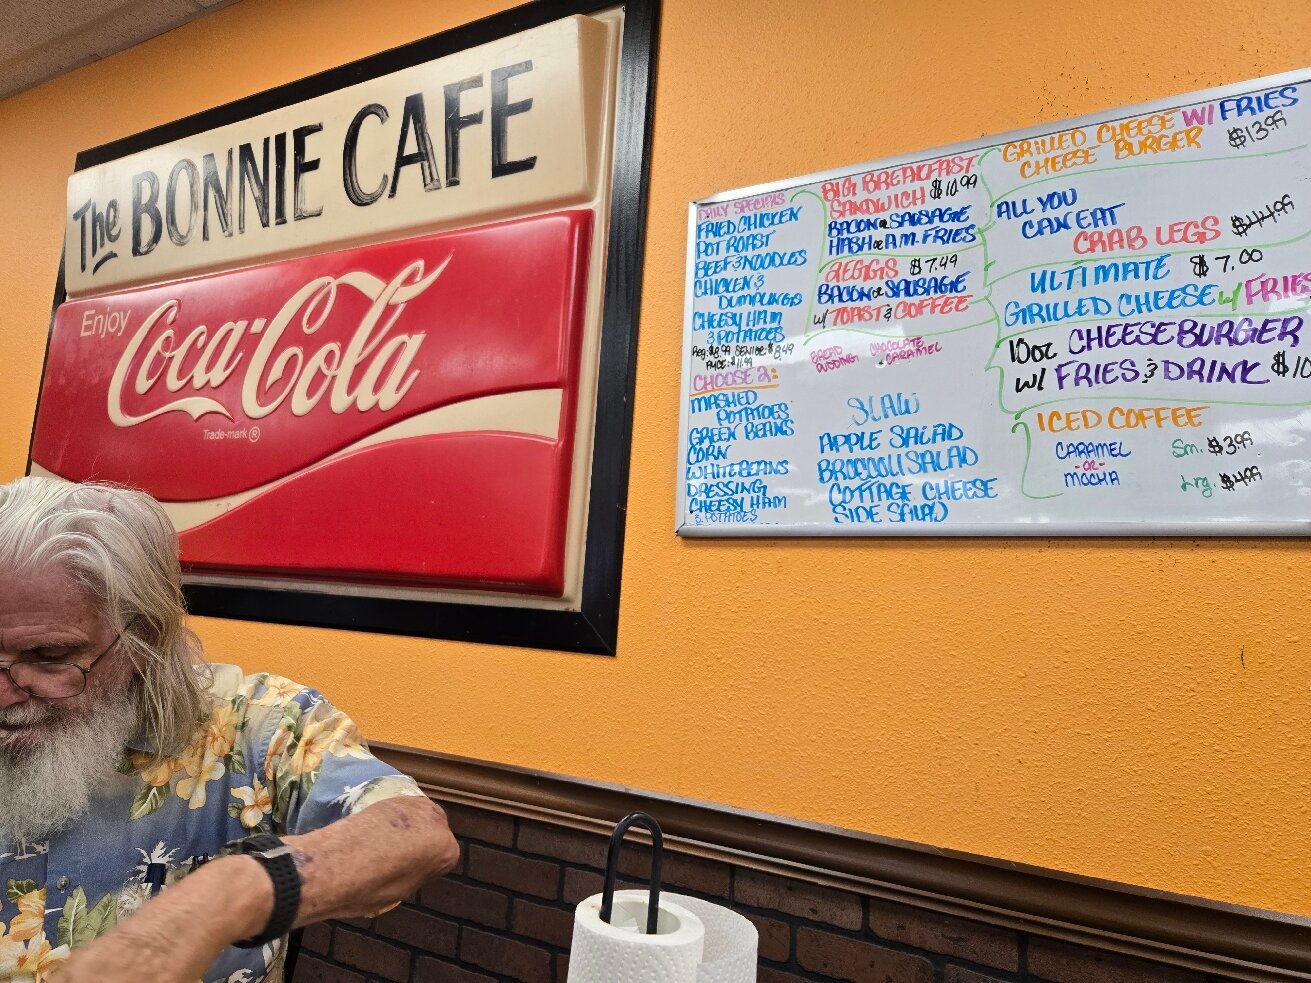 The BONNIE CAFE
Enjoy
Coca-Cola
Trade-mark ®
DAILY SPECIALS
FRIED CHICKEN
POT ROAST
BEEF & NOODLES
CHICKEN &
DUMPLINGS
CHEESY HAM
& POTATOES
CHOOSE 2:
MASHED
POTATOES
GREEN BEANS
CORN
WHITE BEANS
DRESSING
CHEESY HAM
& POTATOES
BIG BREAKFAST
SANDWICH $10.99
BACON or SAUSAGE
HASH or AM. FRIES
2 EGGS $7.49
BACON or SAUSAGE
W/ TOAST & COFFEE
BREAD
PUDDING
CHOCOLATE
CARAMEL
SLAW
APPLE SALAD
BROCCOLI SALAD
COTTAGE CHEESE
SIDE SALAD
GRILLED CHEESE W/ FRIES
CHEESE BURGER $13.99
ALL YOU
CAN EAT
CRAB LEGS $44.99
ULTIMATE $7.00
GRILLED CHEESE W/ FRIES
10oz CHEESEBURGER
W/ FRIES & DRINK $10
ICED COFFEE
CARAMEL
-or-
MOCHA
Sm. $3.99
Lrg. $4.99